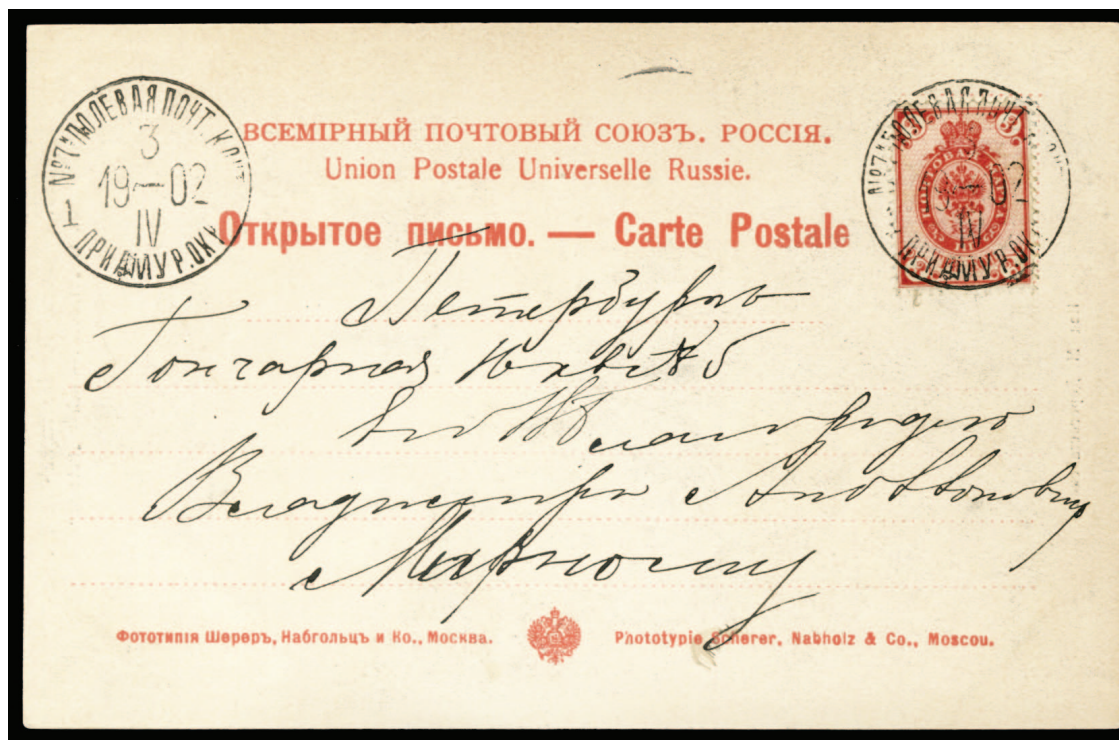 №7 ПОЛЕВАЯ ПОЧТ. КОНТ.
3
19—02
IV
1
ПРИАМУР. ОКР.
ВСЕМІРНЫЙ ПОЧТОВЫЙ СОЮЗЪ. РОССІЯ.
Union Postale Universelle Russie.
Открытое письмо. — Carte Postale
№7 ПОЛЕВАЯ ПОЧТ.
3
19—02
IV
ПРИАМУР. ОКР.
ПОЧТОВАЯ МАРКА
3
Петербургъ
Гончарная
Благородію
Владиміру
Фототипія Шереръ, Набгольцъ и Ко., Москва.
Phototypie Scherer, Nabholz & Co., Moscou.